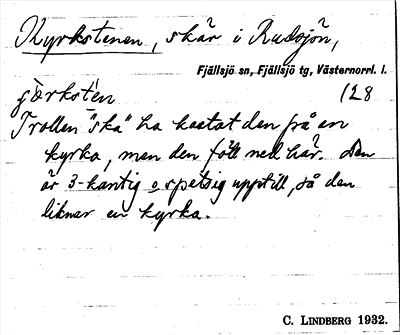 Kyrkstenen, skär i Rudsjön,
Fjällsjö sn, Fjällsjö tg, Västernorrl. l.
128
Trollen "ska" ha kastat den på en
kyrka, men den föll ned här. Den
är 3-kantig o spetsig upptill, så den
liknar en kyrka.
C. LINDBERG 1932.